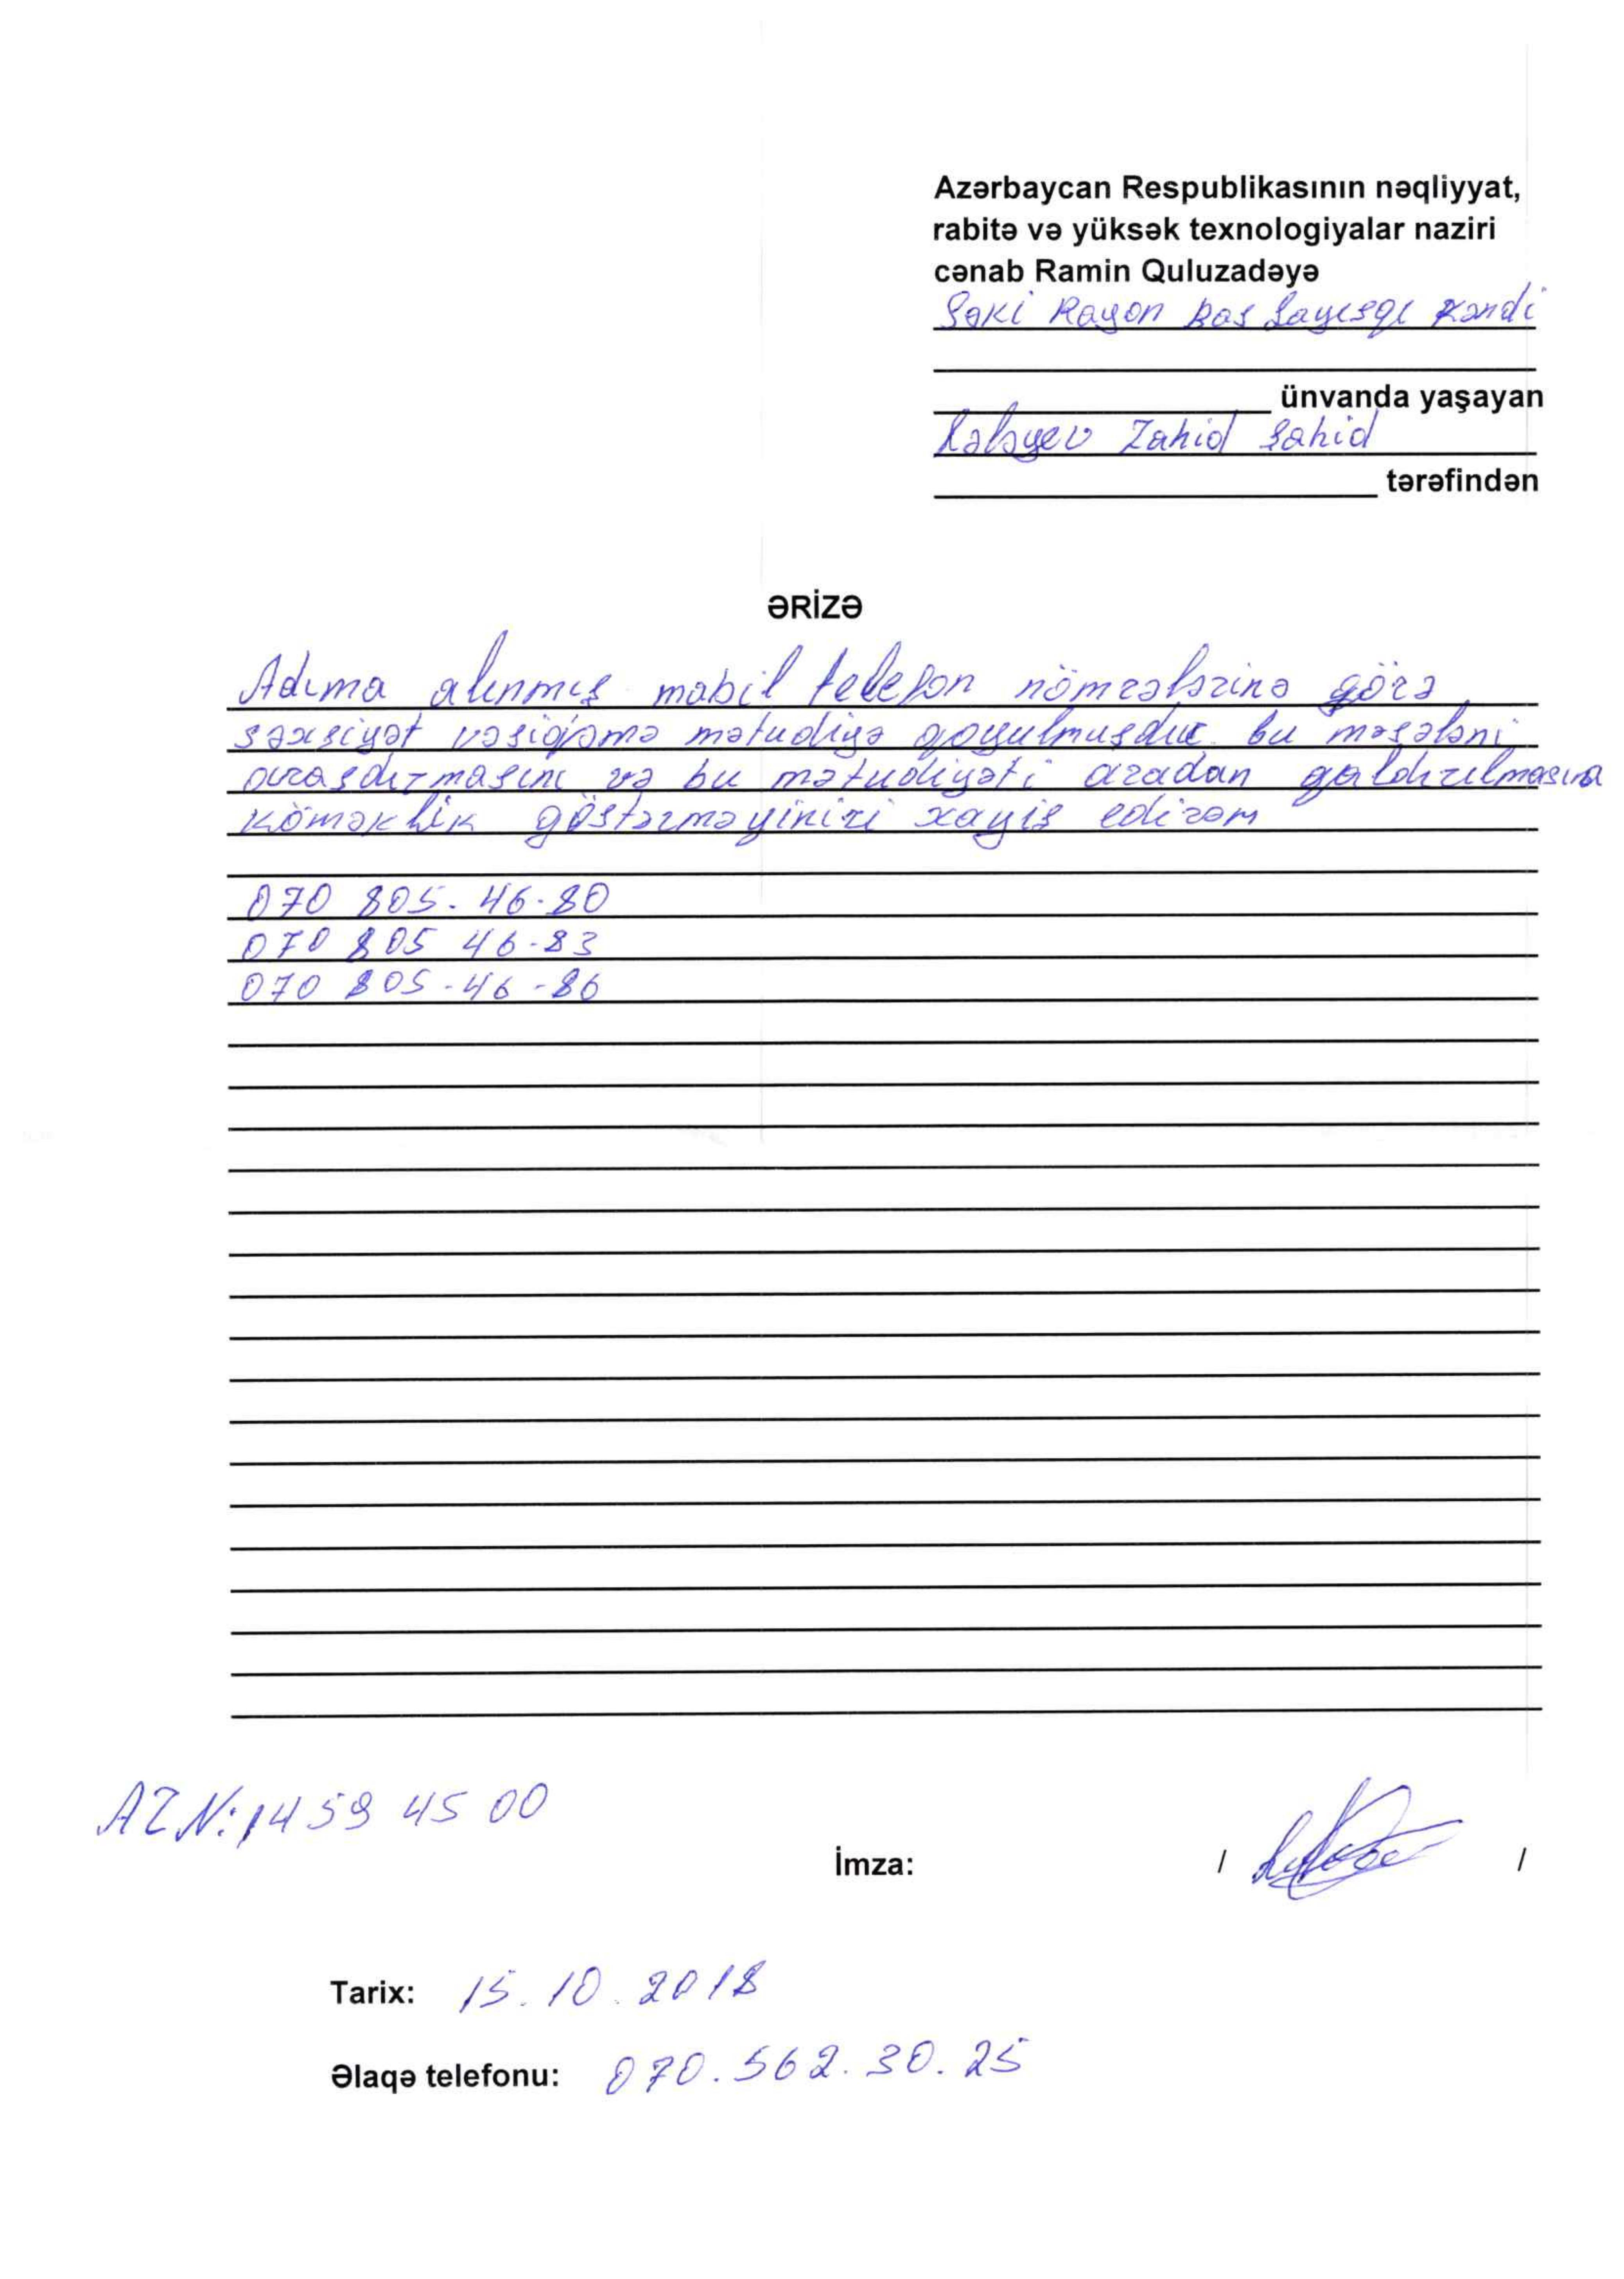 Azərbaycan Respublikasının nəqliyyat,
rabitə və yüksək texnologiyalar naziri
cənab Ramin Quluzadəyə
Şəki Rayon Baş Layısqı Kəndi
ünvanda yaşayan
Lələyev Zahid Şahid
tərəfindən
ƏRİZƏ
Adıma alınmış mobil telefon nömrələrinə görə
səxsiyət vəsiqəmə mətudiyə qoyulmuşdur bu məsələni
arasdırmasını və bu mətudiyəti aradan qaldırılmasına
köməklik göstərməyinizi xayiş edirəm
070 805-46-80
070 805 46-83
070 805-46-86
AZN:1459 45 00
İmza: / /
Tarix: 15.10.2018
Əlaqə telefonu: 070.562.30.25